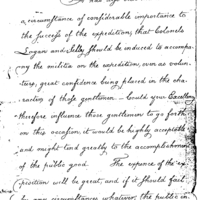 a circumstance of considerable importance to
the success of the expedition, that Colonels
Logan and Selby should be induced to accompa
ny the militia on the expedition, even as volun
teers, great confidence being placed in the cha
racters of those gentlemen. Could your Excellency
therefore influence those gentlemen to go forth
on this occasion, it would be highly acceptable
and might tend greatly to the accomplishment
of the public good. The expence of the ex
pedition will be great, and if it should fail
by any circumstances whatever, the public in